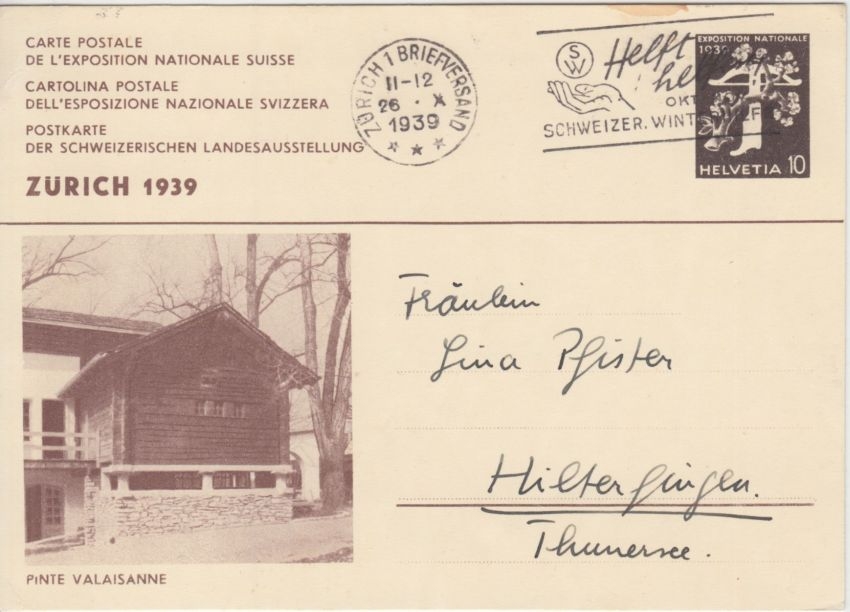 CARTE POSTALE
DE L'EXPOSITION NATIONALE SUISSE
CARTOLINA POSTALE
DELL'ESPOSIZIONE NAZIONALE SVIZZERA
POSTKARTE
DER SCHWEIZERISCHEN LANDESAUSSTELLUNG
ZÜRICH 1939
ZÜRICH 1 BRIEFVERSAND
11-12
26 · X
1939
SW
Helft
OKT
SCHWEIZER.
EXPOSITION NATIONALE
1939
HELVETIA 10
Fräulein
Lina Pfister
Hilterfingen.
Thunersee.
PINTE VALAISANNE